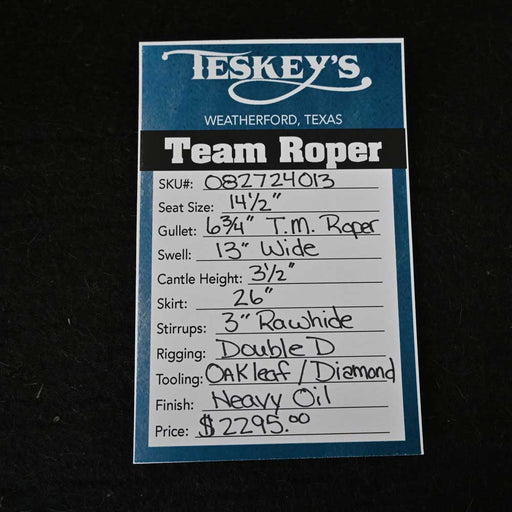 TESKEY'S
WEATHERFORD, TEXAS
Team Roper
SKU#: 082724013
Seat Size: 14 1/2"
Gullet: 6 3/4" T.M. Roper
Swell: 13" Wide
Cantle Height: 3 1/2"
Skirt: 26"
Stirrups: 3" Rawhide
Rigging: Double D
Tooling: OAKleaf / Diamond
Finish: Heavy Oil
Price: $2295.00